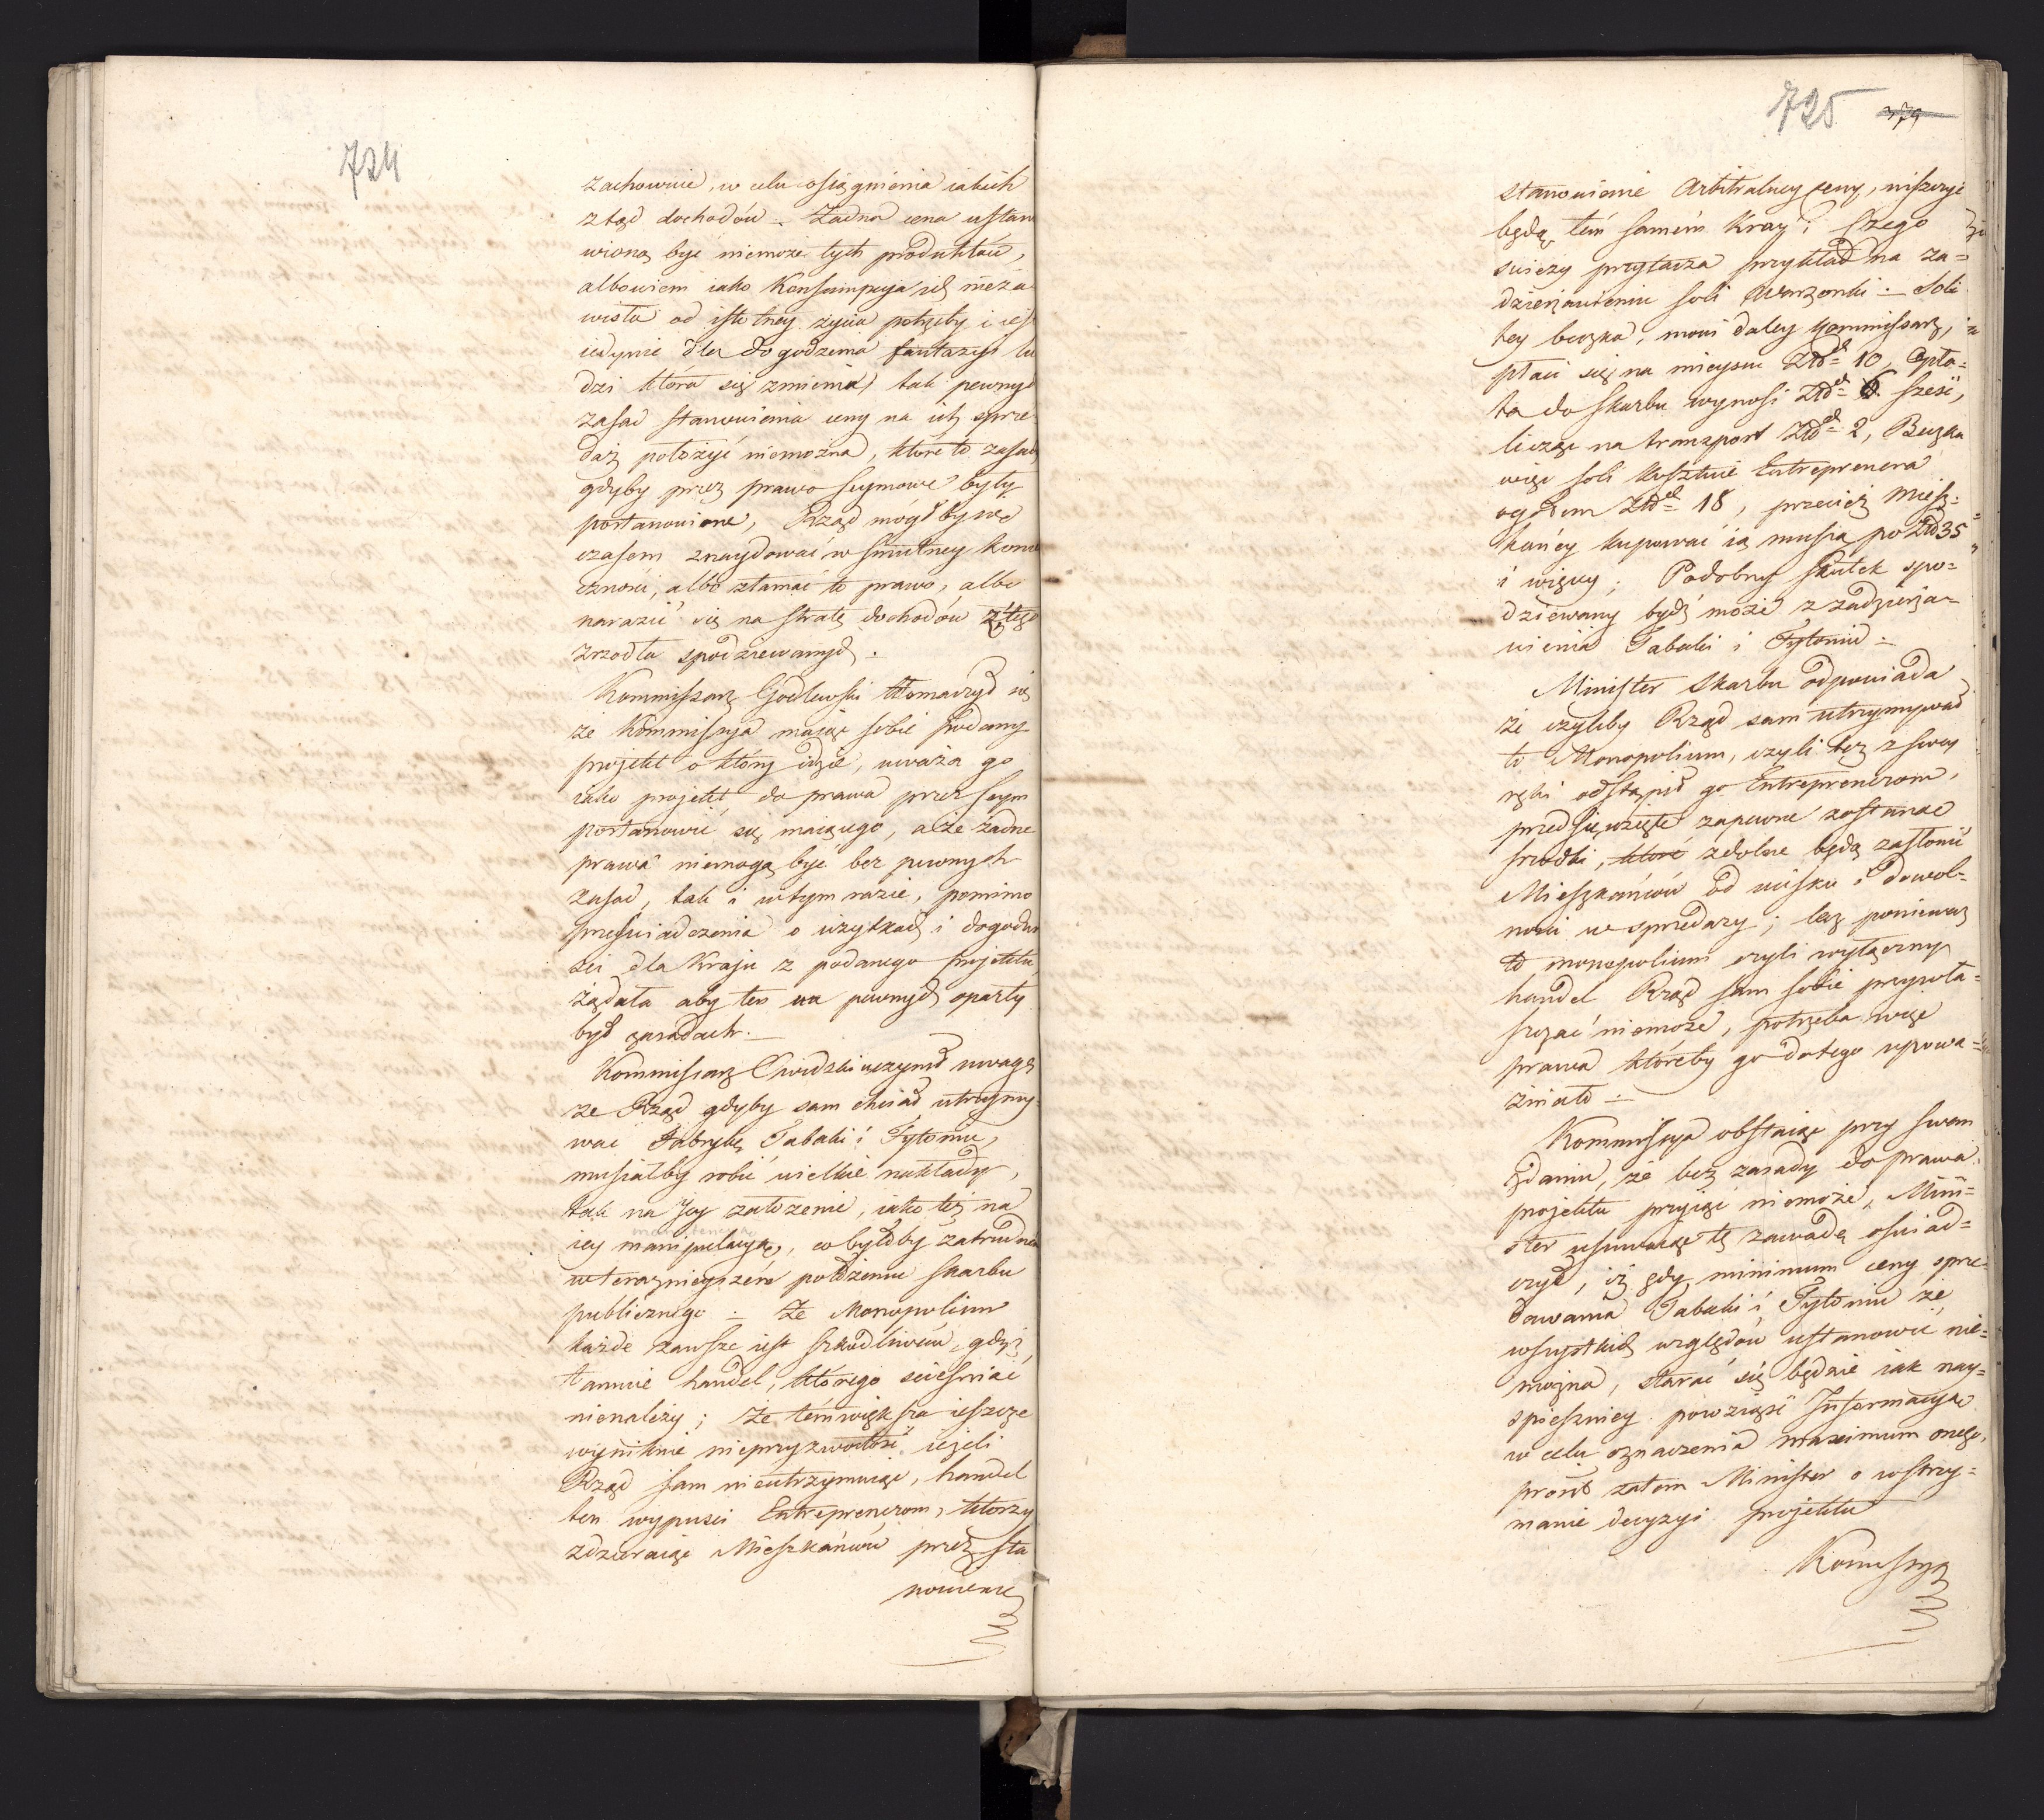 724
zachownie, w celu osiągnienia iakich
ztąd dochodów. Żadna cena ustano
wioną być niemoże tych produktów,
albowiem iako Konsumpcya ich nieza
wisła od istotney życia potrzeby i iest
iedynie dla dogodzenia fantazyi lu
dzi która się zmienia, tak pewnych
zasad stanowienia ceny na ich sprze
daż położyć niemożna, które to zasady
gdyby przez prawo seymowe były
postanowione, Rząd mógłby się
czasem znaydować w smutney konie
czności, albo złamać to prawo, albo
narazić się na stratę dochodów z tego
zrzodła spodziewanych.
Kommissarz Godlewski tłomaczył się
że Kommissyja maiąc sobie podany
projekt o który idzie, uważa go
iako projekt do prawa przez seym
postanowić się maiącego, a że żadne
prawa niemogą być bez pewnych
zasad, tak i w tym razie, pomimo
przeświadczenia o użytkach i dogodno
ści dla Kraju z podanego projektu,
żądała aby ten na pewnych oparty
był zasadach.
Kommissarz Cwidzki uczynił uwagę
że Rząd gdyby sam chciał utrzymy
wać Fabrykę Tabaki i Tytoniu,
musiałby robić wielkie nakłady,
tak na Jey założenie, iako też na
iey manipulacyą, co byłoby zatrudnie
w teraznieyszém położeniu skarbu
publicznego. Że Monopolium
każde zawsze iest szkodliwém, gdyż
tamuie handel, którego ścieśniać
nienależy; Że tém większa ieszcze
wyniknie nieprzyzwoitość ieżeli
Rząd sam nieutrzymuiąc, handel
ten wypuści Entreprenerom, którzy
zdzieraiąc Mieszkańców przez sta
nowienie
725 379
stanowienie Arbitralney ceny, niszczyć
będą tém samém Kray; Czego
świeży przytacza przykład na za=
dzierżawieniu soli Warzonki. Soli
tey beczka, mówi daley Kommissarz,
płaci się na mieyscu Złd 10, Opła=
ta do skarbu wynosi Złd 6 sześć,
licząc na transport Złd 2, Beczka
więc soli kosztuie Entreprenera
ogółem Złd 18, przecież Miesz=
kańcy kupować ią muszą po Złd 35
i więcey; Podobny skutek spo=
dziewany bydź może z zadzierża=
wienia Tabaki i Tytoniu.
Minister Skarbu odpowiada
że czyliby Rząd sam utrzymywał
to Monopolium, czyli też z swey
ręki odstąpił go Entreprenerom,
przedsięwzięte zapewne zostaną
srodki, które zdolne będą zasłonić
Mieszkańców od ucisku i dowol=
ności w sprzedaży; lecz ponieważ
to monopolium czyli wyłączny
handel Rząd sam sobie przywła=
szczać niemoże, potrzeba więc
prawa któreby go do tego upowa=
żniało.
Kommissyja obstaiąc przy swem
zdaniu, że bez zasady do prawa
projektu przyjąć niemoże, Mini=
ster usuwaiąc tę zawadę oświad=
czył, iż gdy minimum ceny sprze=
dawania Tabaki i Tytoniu ze
wszystkich względów ustanowić nie=
można, starać się będzie iak nay=
spieszniey powziąść Informacyą
w celu oznaczenia maximum onego,
prosił zatem Minister o wstrzy=
manie decyzyi projektu
Komissyja